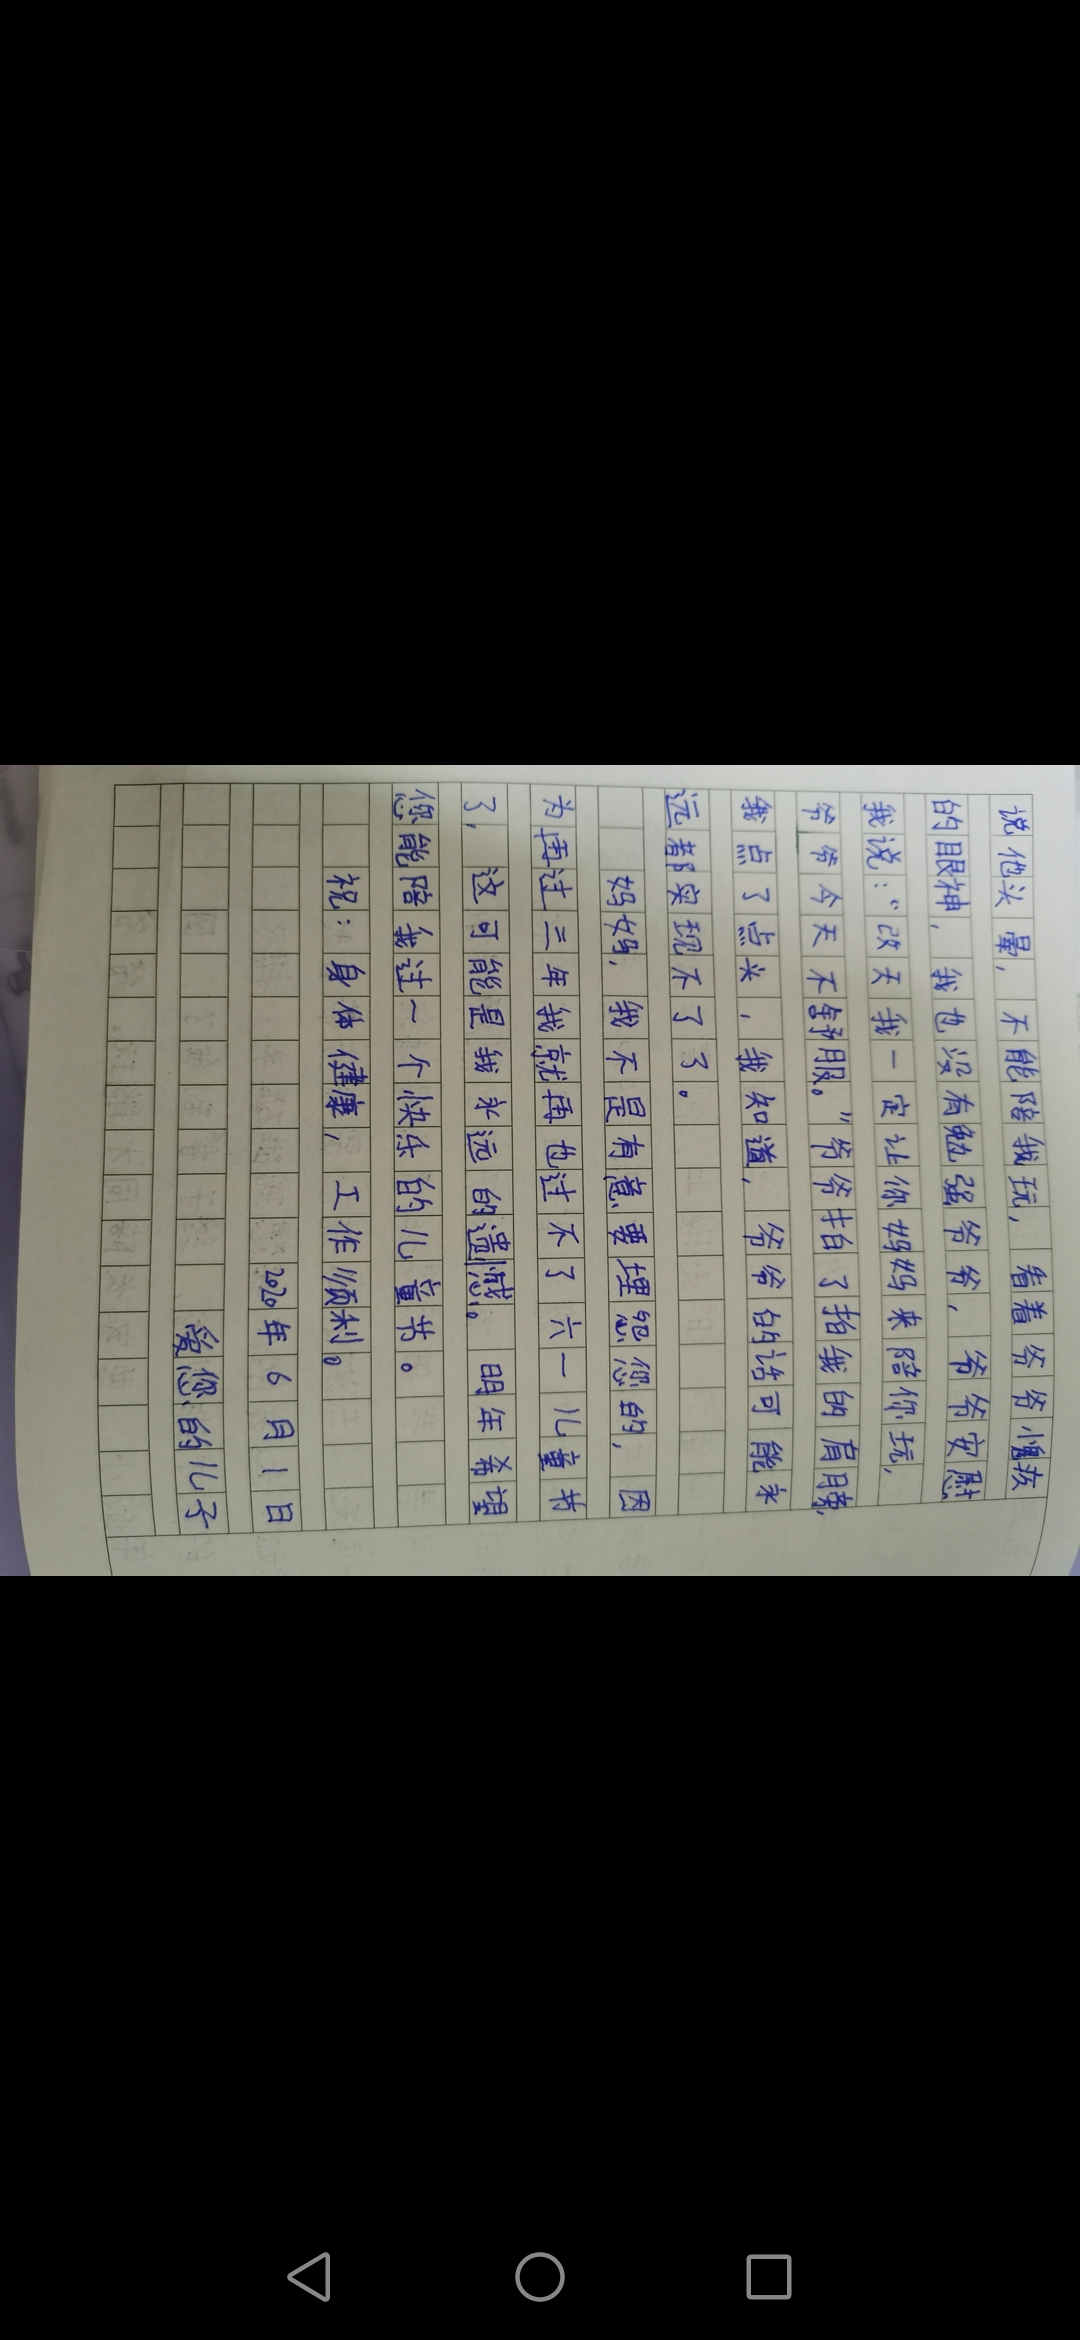 说他头晕，不能陪我玩，看着爷爷愧疚
的眼神，我也没有勉强爷爷，爷爷安慰
我说：“改天我一定让你妈妈来陪你玩，
爷爷今天不舒服。”爷爷拍了拍我的肩膀，
我点了点头，我知道，爷爷的话可能永
远都实现不了了。
妈妈，我不是有意要埋怨您的，因
为再过三年我就再也过不了六一儿童节
了，这可能是我永远的遗憾。明年希望
您能陪我过一个快乐的儿童节。
祝：身体健康，工作顺利。
2020年6月1日
爱您的儿子